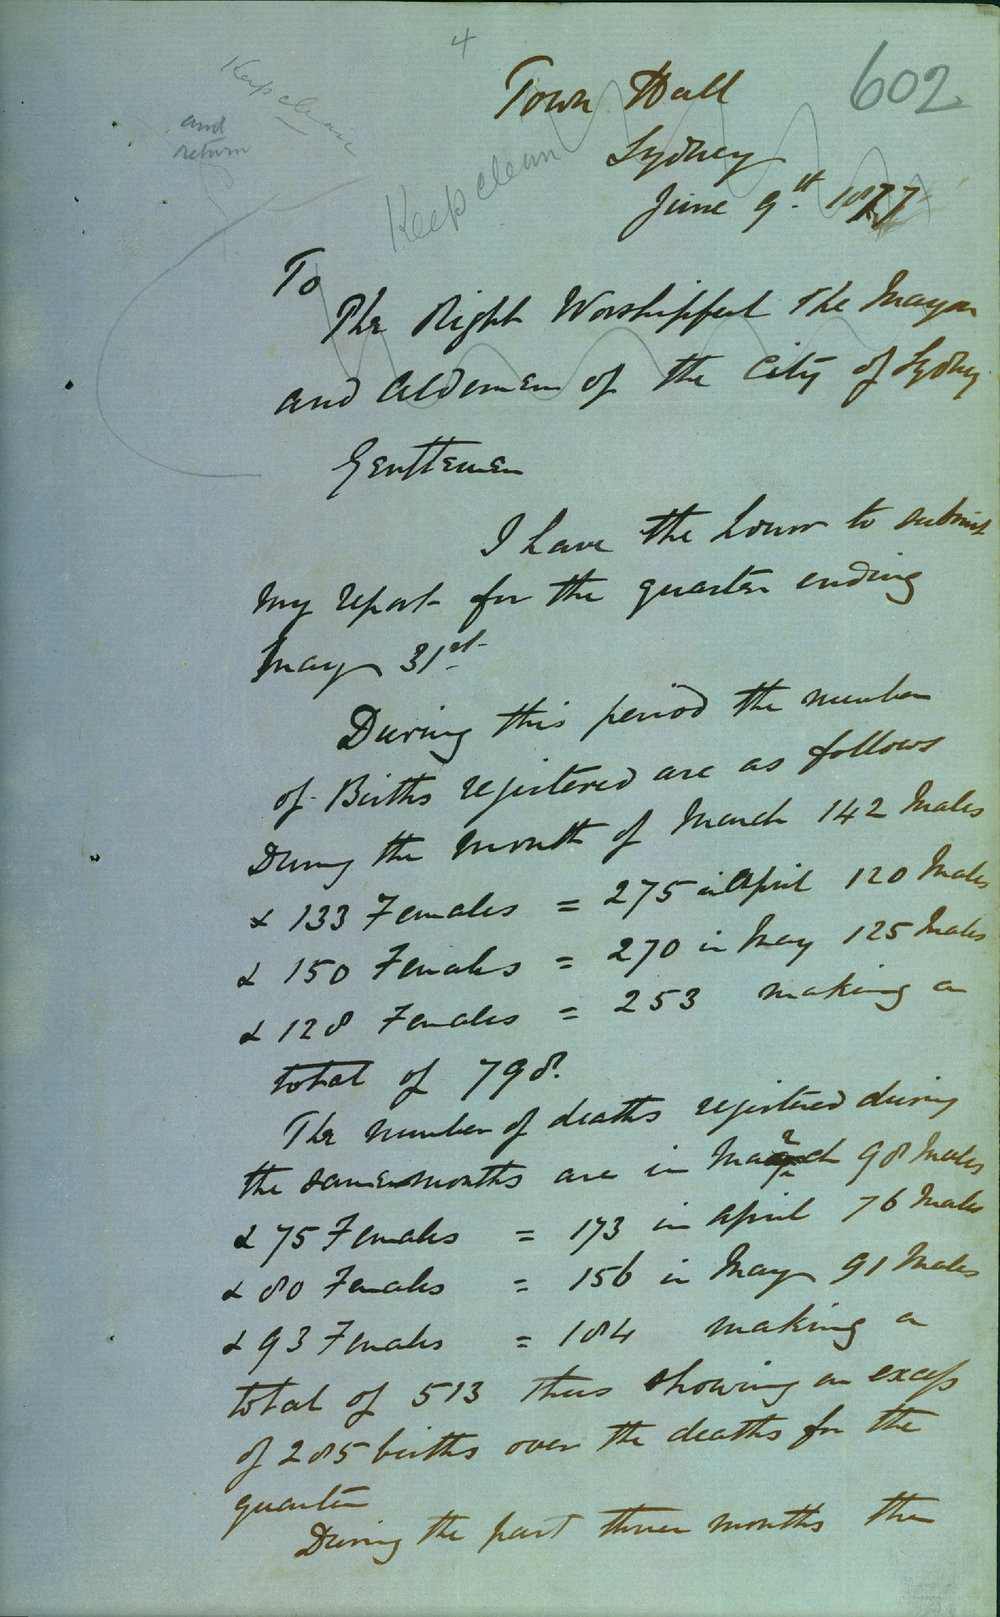 4
602
Keep clean
and
return
Keep clean
Town Hall
Sydney
June 9th 1877
To
The Right Worshipful The Mayor
and Aldermen of the City of Sydney
Gentlemen
I have the honor to submit
my report for the quarter ending
May 31st
During this period the number
of Births registered are as follows
During the month of March 142 Males
& 133 Females = 275 in April 120 Males
& 150 Females = 270 in May 125 Males
& 128 Females = 253 making a
total of 798.
The number of deaths registered during
the same months are in March 98 Males
& 75 Females = 173 in April 76 Males
& 80 Females = 156 in May 91 Males
& 93 Females = 184 making a
total of 513 thus showing an excess
of 285 births over the deaths for the
quarter
During the past three months the